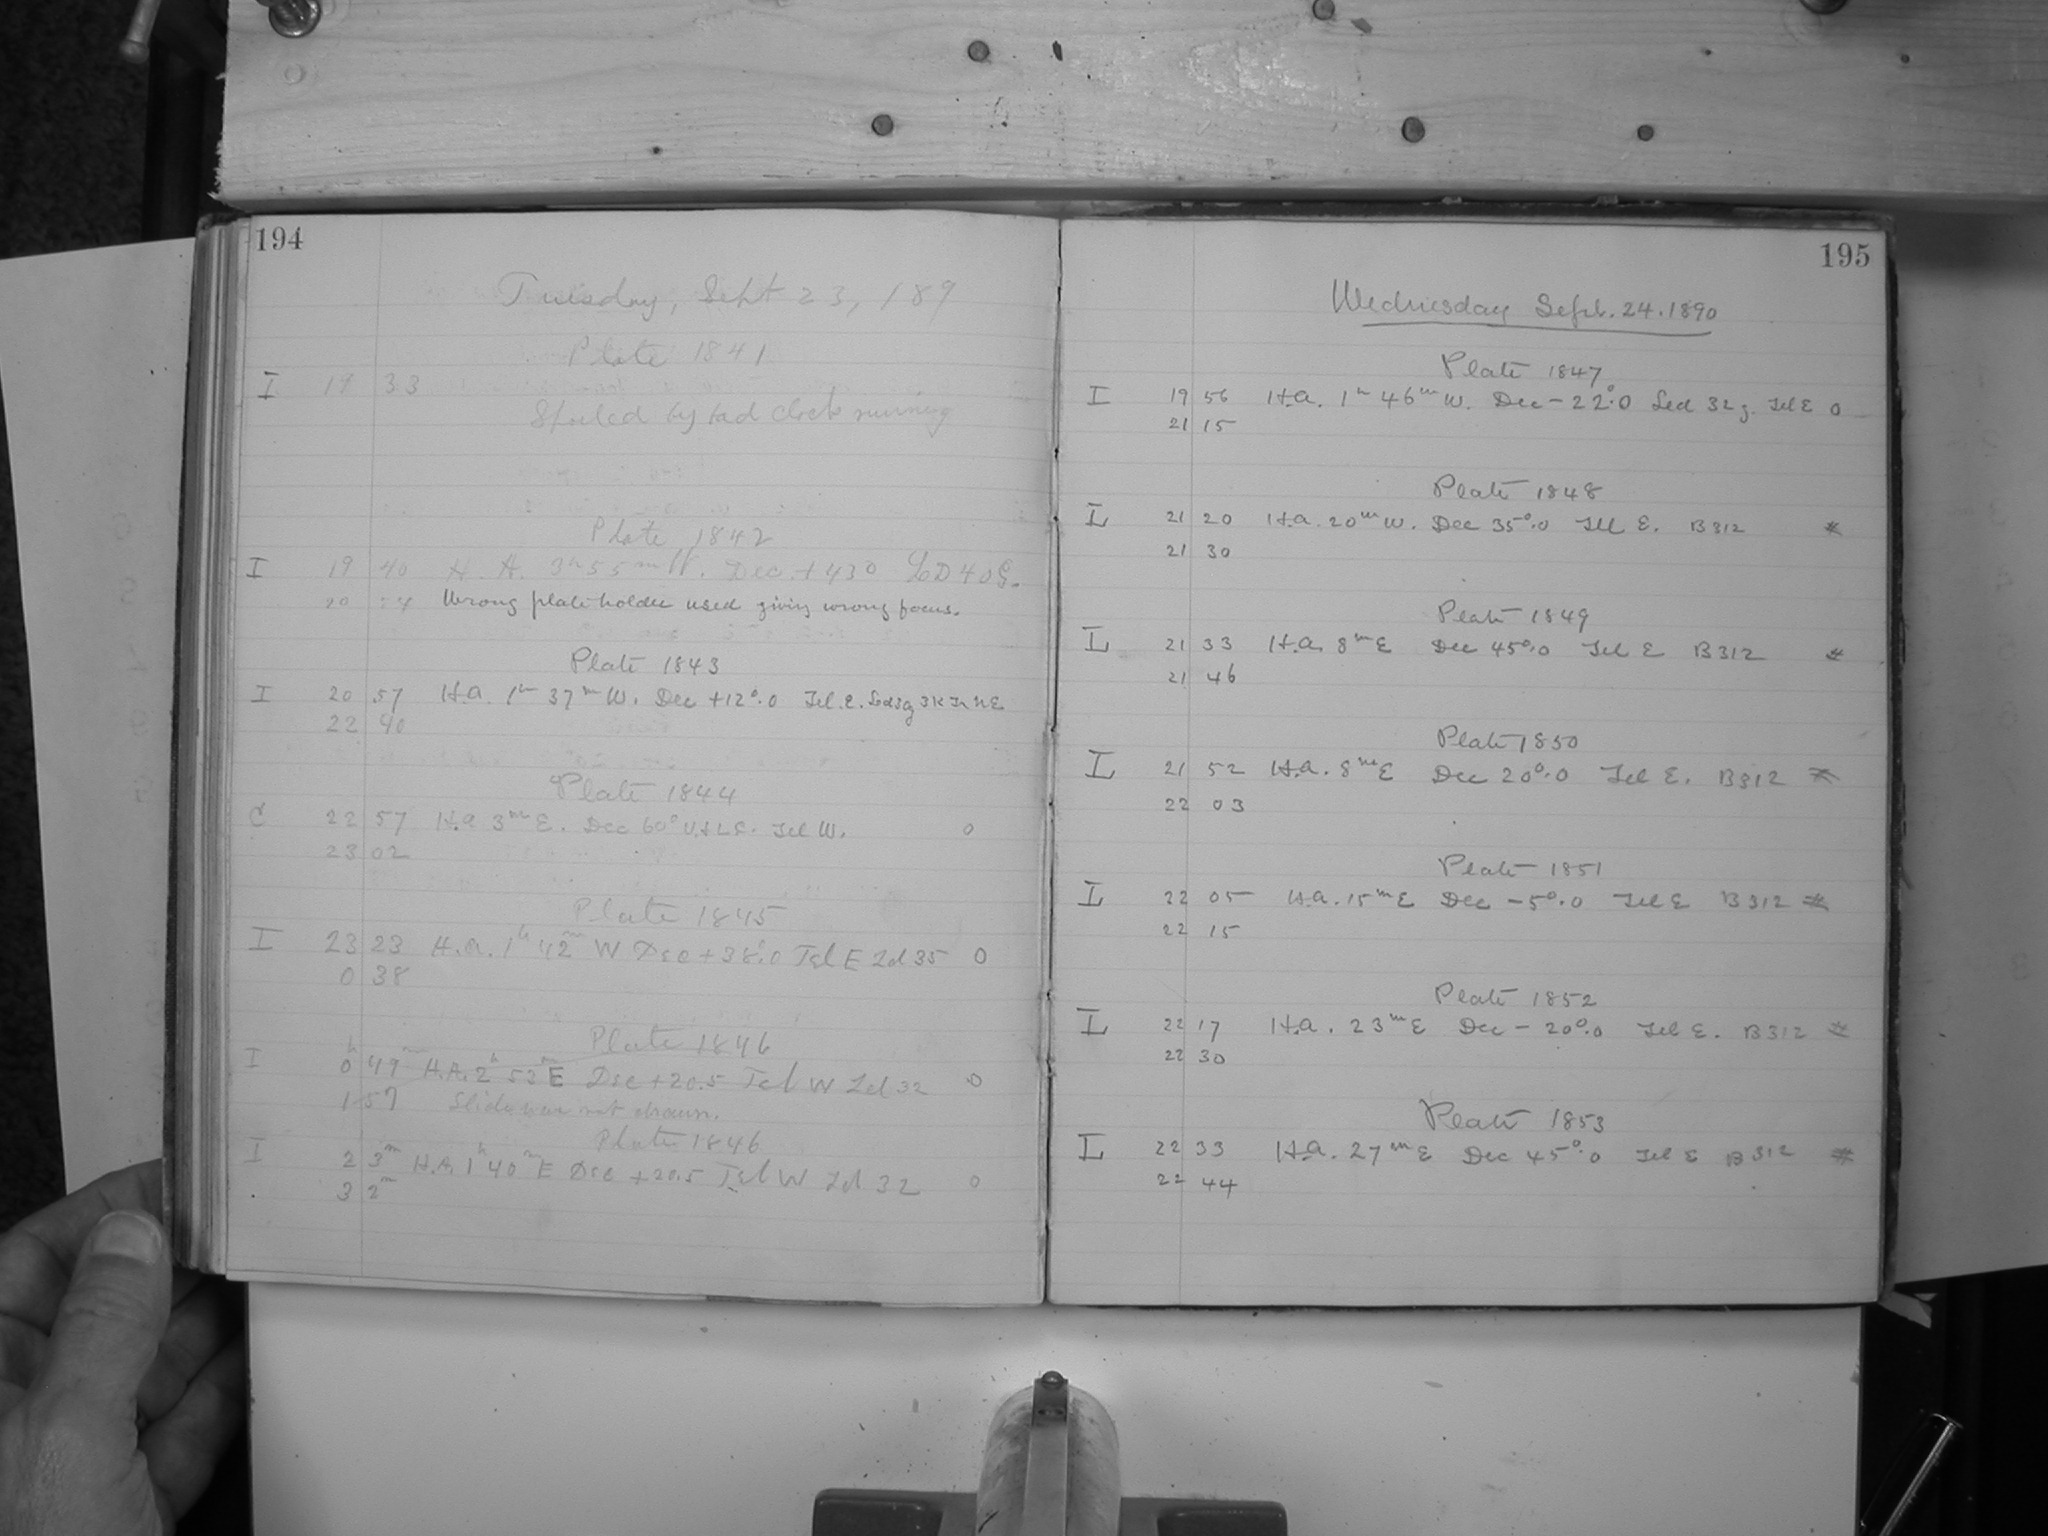 194
Tuesday, Sept 23, 189
Plate 1841
I 19 33
Spoiled by bad clock running
Plate 1842
I 19 40 H. A. 3h 55m W. Dec. +43 0 LD 40 G.
20 54 Wrong plate holder used giving wrong focus.
Plate 1843
I 20 57 H.a. 1h 37m W. Dec +12°.0 Tel. E.
22 40
Plate 1844
C 22 57 H.a 3m E. Dec 60° Tel W. 0
23 02
Plate 1845
I 23 23 H.A. 1h 42m W Dec +38°.0 Tel E Ld 35 0
0 38
Plate 1846
I 0h 49m H.A. 2h 53m E Dec +20.5 Tel W Ld 32 0
1 57 Slide was not drawn.
Plate 1846
I 2 3m H.A. 1h 40m E Dec +20.5 Tel W Ld 32 0
3 2m
195
Wednesday Sept. 24. 1890
Plate 1847
I 19 56 H.a. 1h 46m W. Dec -22°.0 Led 32 g. Tel E 0
21 15
Plate 1848
L 21 20 H.a. 20m W. Dec 35°.0 Tel E. B 312 *
21 30
Plate 1849
L 21 33 H.a. 8m E Dec 45°.0 Tel E B 312 *
21 46
Plate 1850
L 21 52 H.a. 8m E Dec 20°.0 Tel E. B 312 *
22 03
Plate 1851
L 22 05 H.a. 15m E Dec -5°.0 Tel E B 312 *
22 15
Plate 1852
L 22 17 H.a. 23m E Dec -20°.0 Tel E. B 312 *
22 30
Plate 1853
L 22 33 H.a. 27m E Dec 45°.0 Tel E B 312 *
22 44